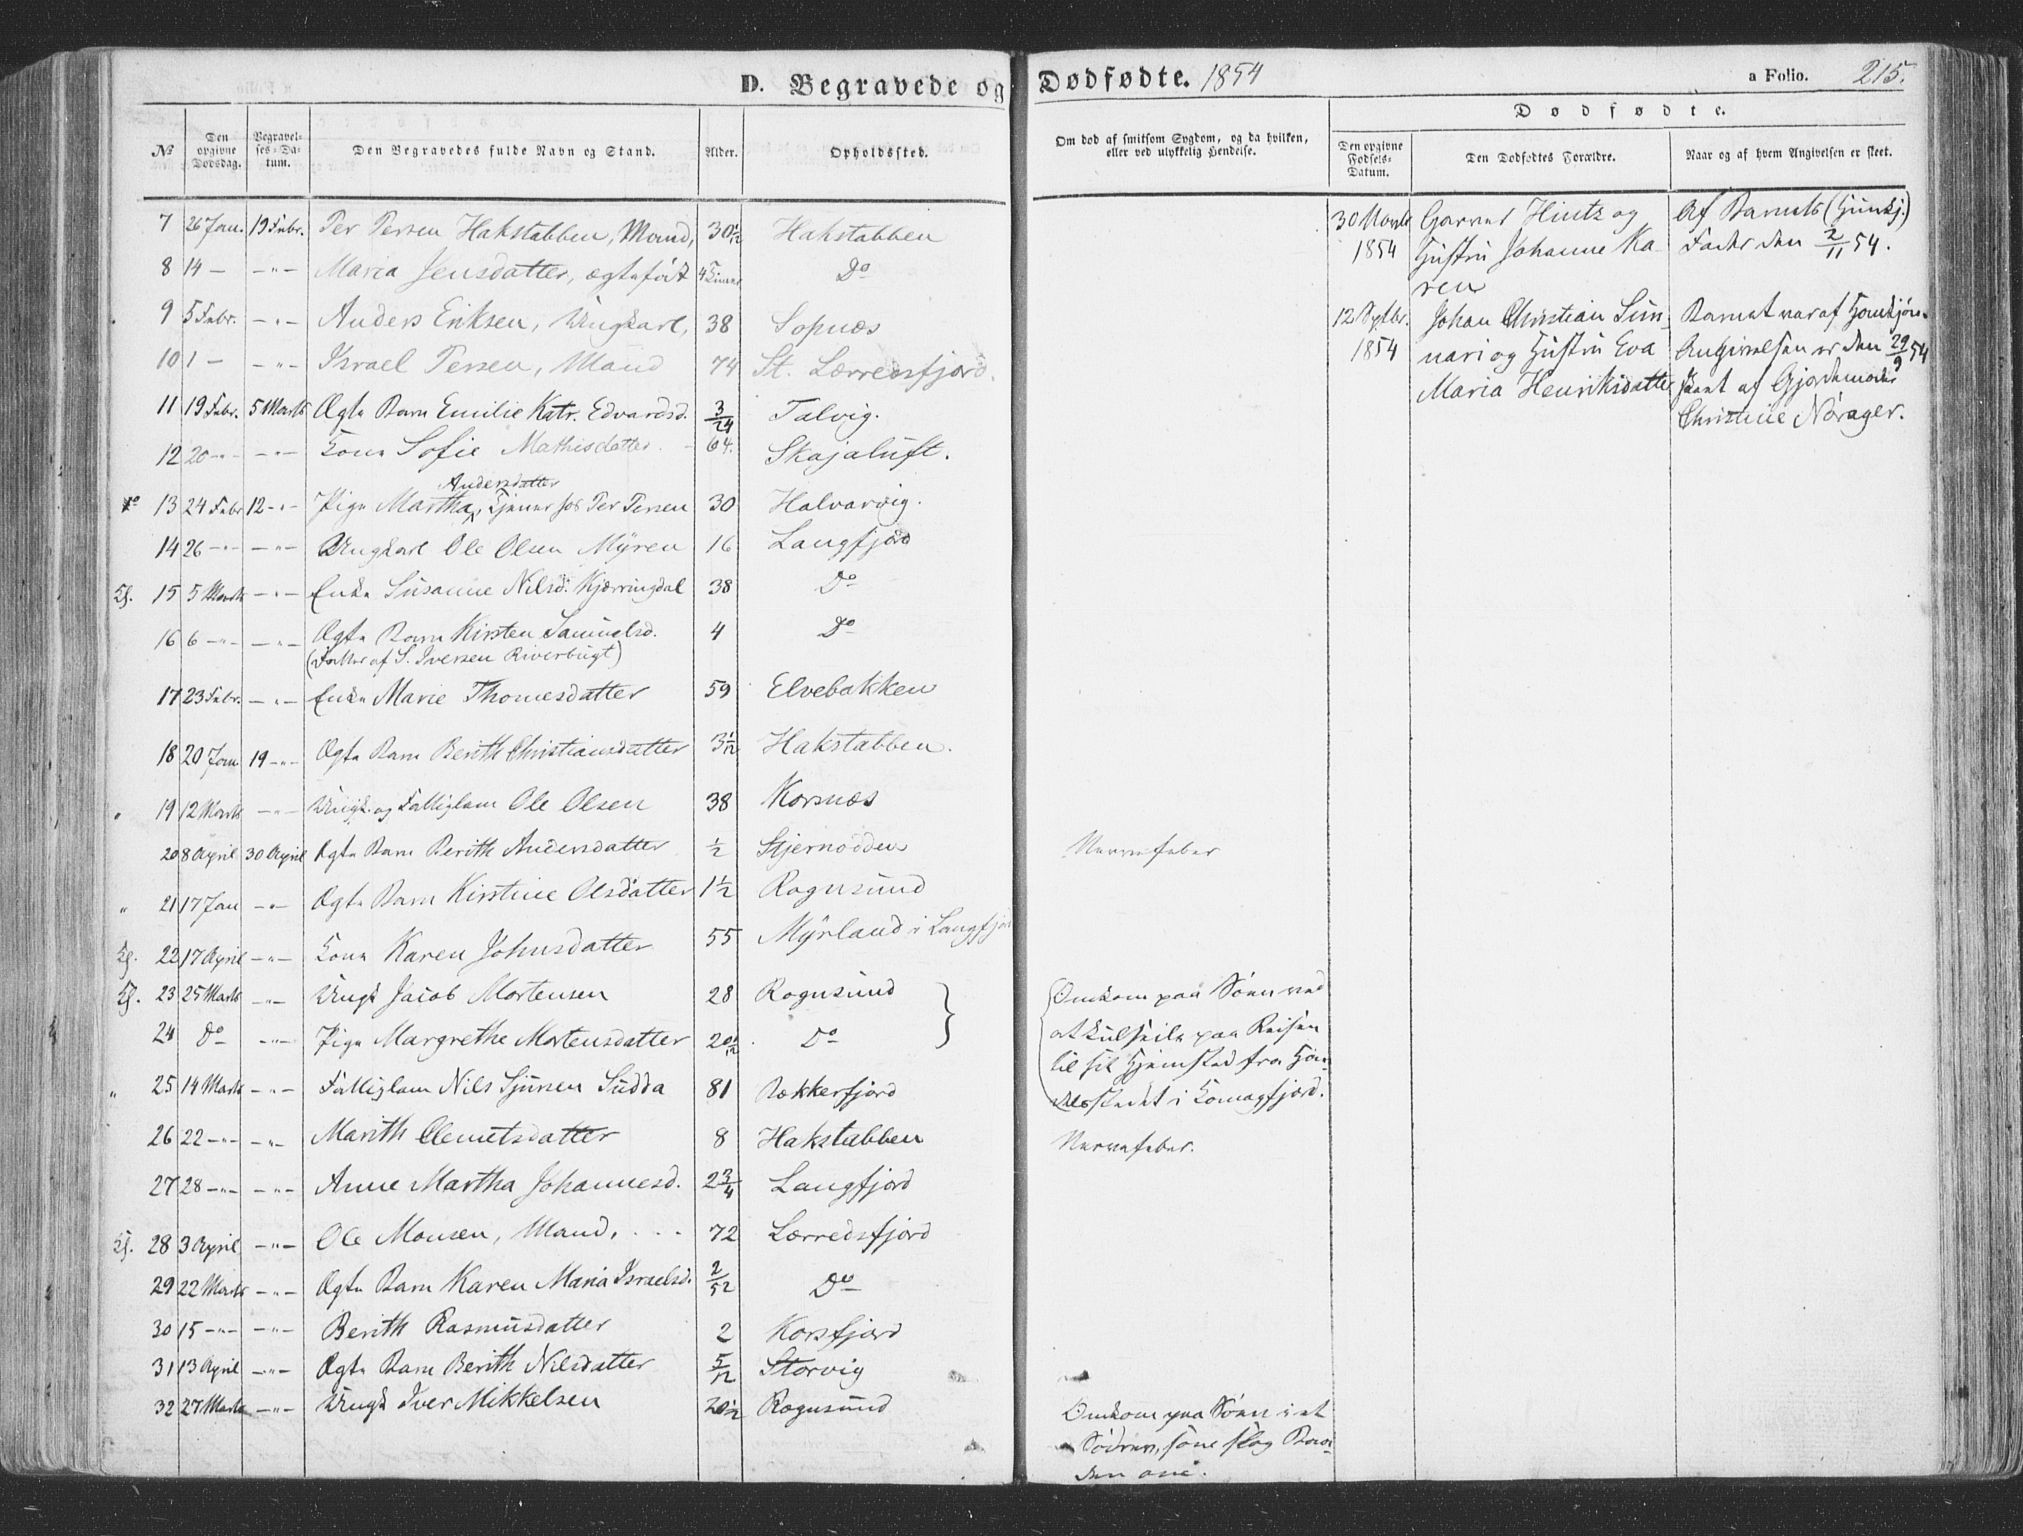 D. Begravede og Dødfødte. 1854
a Folio. 215.
Dødfødte.
No
Den opgivne Dødsdag.
Begravelses-Datum.
Den Begravedes fulde Navn og Stand.
Alder.
Opholdssted.
Om død af smitsom Sygdom, og da hvilken, eller ved ulykkelig Hendelse.
Den opgivne Fødsels-Datum.
Den Dødfødtes Forældre.
Naar og af hvem Angivelsen er skeet.
7 26 Jan. 19 Febr. Per Persen Hakstabben, Mand, 30 1/12 Hakstabben
8 14 — —"— Maria Jensdatter, ægtefødt 4 Timer Do
9 5 Febr. —"— Anders Eriksen, Ungkarl, 38 Sopnæs
10 1 — —"— Israel Persen, Mand 74 St. Lærredsfjord.
11 19 Febr. 5 Marts Ægte Barn Emilie Katr. Edvardsd. 3/24 Talvig.
12 20 —"— —"— Kone Sofie Mathisdatter. 64. Skajaluft.
Andersdatter
13 24 Febr 12 —"— Pige Martha, Tjener hos Per Persen 30 Halvarvig.
14 26 —"— —"— Ungkarl Ole Olsen Myren 16 Langfjord
15 5 Marts —"— Enke Susanne Nilsd. Kjærringdal 38 Do
16 6 —"— —"— Ægte Barn Kirsten Samuelsd. 4 Do
(Datter af S. Iversen Riverbugt)
17 23 Febr. —"— Enke Marie Thomesdatter 59 Elvebakken
18 20 Jan 19 —"— Ægte Barn Berith Christiansdatter 3 1/12 Hakstabben.
19 12 Marts —"— Ungk. og Fattiglem Ole Olsen 38 Korsnæs
20 8 April 30 April Ægte Barn Berith Andersdatter 1/2 Stjernodden Nervefeber
21 17 Jan —"— Ægte Barn Kirstine Olsdatter 1 1/2 Rognsund
22 17 April —"— Kone Karen Johnsdatter 55 Myrland i Langfjord
23 25 Marts —"— Ungk Jacob Mortensen 28 Rognsund
24 Do —"— Pige Margrethe Mortensdatter 20 1/12 Do
Omkom paa Søen ved
at kulseile paa Reisen
til sit Hjemsted fra Han-
delsstedet i Komagfjord.
25 14 Marts —"— Fattiglem Nils Sjursen Sudda 81 Rækkerfjord
26 22 —"— —"— Marith Clemetsdatter 8 Hakstabben Nervefeber.
27 28 —"— —"— Anne Martha Johannesd. 2 3/4 Langfjord
28 3 April —"— Ole Monsen, Mand. 72 Lærredsfjord
29 22 Marts —"— Ægte Barn Karen Maria Israelsd. 2/52 Do
30 15 —"— —"— Berith Rasmusdatter 2 Korsfjord
31 13 April —"— Ægte Barn Berith Nilsdatter 5/12 Storvig
32 27 Marts —"— Ungk Iver Mikkelsen 20 1/2 Rognsund
Omkom paa Søen i et
Sødrev, som slog Baa-
den om.
30 Marts
1854
Garver Hintz og
Hustru Johanne Ka-
ren
Af Barnets (Hjemkj.)
Fader den 2/11 54.
12 Septbr.
1854
Johan Christian Sun-
nari og Hustru Eva
Maria Henriksdatter
Barnet var af Hjemkjøn.
Angivelsen er den 29/9 54
skeet af Gjordemoder
Christine Nørager.